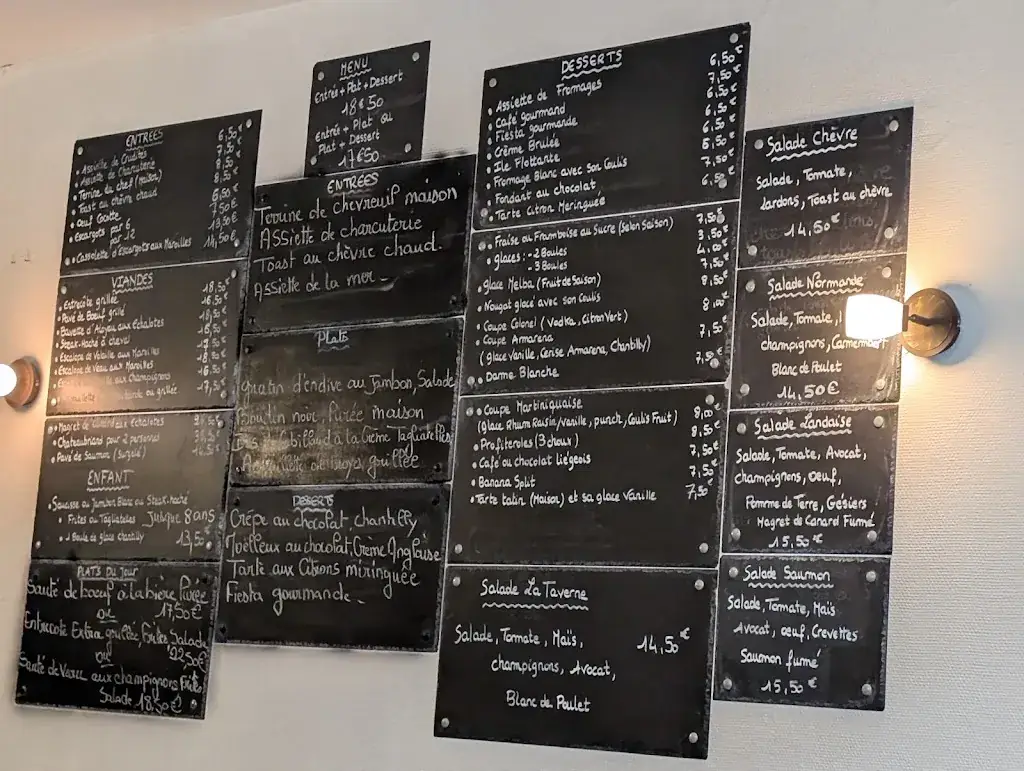 ENTRÉES
• Assiette de Crudités 6,50€
• Assiette de Charcuterie 7,50€
• Terrine du chef (maison) 8,50€
• Toast au chèvre chaud 8,50€
• Oeuf Cocotte 6,50€
• Escargots par 6 7,50€
par 12 13,50€
• Cassolette d'Escargots aux Maroilles 14,50€
VIANDES
• Entrecôte grillée 18,50€
• Pavé de Boeuf grillé 16,50€
• Bavette d'Aloyau aux échalotes
• Steak-Haché à cheval
• Escalope de Volaille aux Maroilles
• Escalope de Veau aux Maroilles
aux Champignons 16,50€
ou grillée 17,50€
• Magret de canard aux échalotes
• Chateaubriand pour 2 personnes
• Pavé de Saumon (surgelé)
ENFANT
Saucisse ou Jambon Blanc ou Steak-haché
• Frites ou Tagliatelles Jusque 8 ans
• 1 Boule de glace chantilly 13,50
PLATS DU Jour
Sauté de boeuf à la bière, Purée
17,50€
ou
Entrecôte Extra grillée, Frites Salade
22,50€
ou
Sauté de Veau aux champignons Frites
Salade 18,50€
MENU
Entrée + Plat + Dessert
18€50
Entrée + Plat ou
Plat + Dessert
17€50
ENTRÉES
Terrine de chevreuil maison
Assiette de charcuterie
Toast au chèvre chaud.
Assiette de la mer
Plats
gratin d'endive au Jambon, Salade
Boudin noir, Purée maison
Dos de cabillaud à la Crème Tagliatelles
grillée
DESSERTS
Crêpe au chocolat, chantilly
Moelleux au chocolat, Crème Anglaise
Tarte aux Citrons miringuée
Fiesta gourmande
DESSERTS
• Assiette de Fromages 6,50€
• Café gourmand 7,50€
• Fiesta gourmande 6,50€
• Crème Brulée 6,50€
• Ile Flottante 6,50€
• Fromage Blanc avec son Coulis 6,50€
• Fondant au chocolat, 7,50€
• Tarte Citron Meringuée 6,50€
• Fraise ou Framboise au Sucre (Selon Saison) 7,50€
• glaces : - 2 Boules 3,50€
- 3 Boules 4,00€
• glace Melba (Fruit de Saison) 7,50€
• Nougat glacé avec son Coulis 8,50€
• Coupe Colonel (Vodka, Citron Vert) 8,00€
• Coupe Amarena
(glace Vanille, Cerise Amarena, Chantilly) 7,50€
• Dame Blanche 7,50€
• Coupe Martiniquaise 8,00€
(glace Rhum Raisin/vanille, punch, Coulis Fruit)
• Profiteroles (3 choux) 8,50€
• Café ou chocolat liégeois 7,50€
• Banana Split 7,50€
• Tarte tatin (Maison) et sa glace Vanille 7,50€
Salade La Taverne
Salade, Tomate, Maïs, 14,50€
champignons, Avocat,
Blanc de Poulet
Salade Chèvre
Salade, Tomate,
lardons, Toast au chèvre
14,50€
Salade Normande
Salade, Tomate,
champignons, Camembert
Blanc de Poulet
14,50€
Salade Landaise
Salade, Tomate, Avocat,
champignons, oeuf,
Pomme de Terre, Gésiers
Magret de Canard Fumé
15,50€
Salade Saumon
Salade, Tomate, Maïs
Avocat, oeuf, Crevettes
Saumon fumé
15,50€